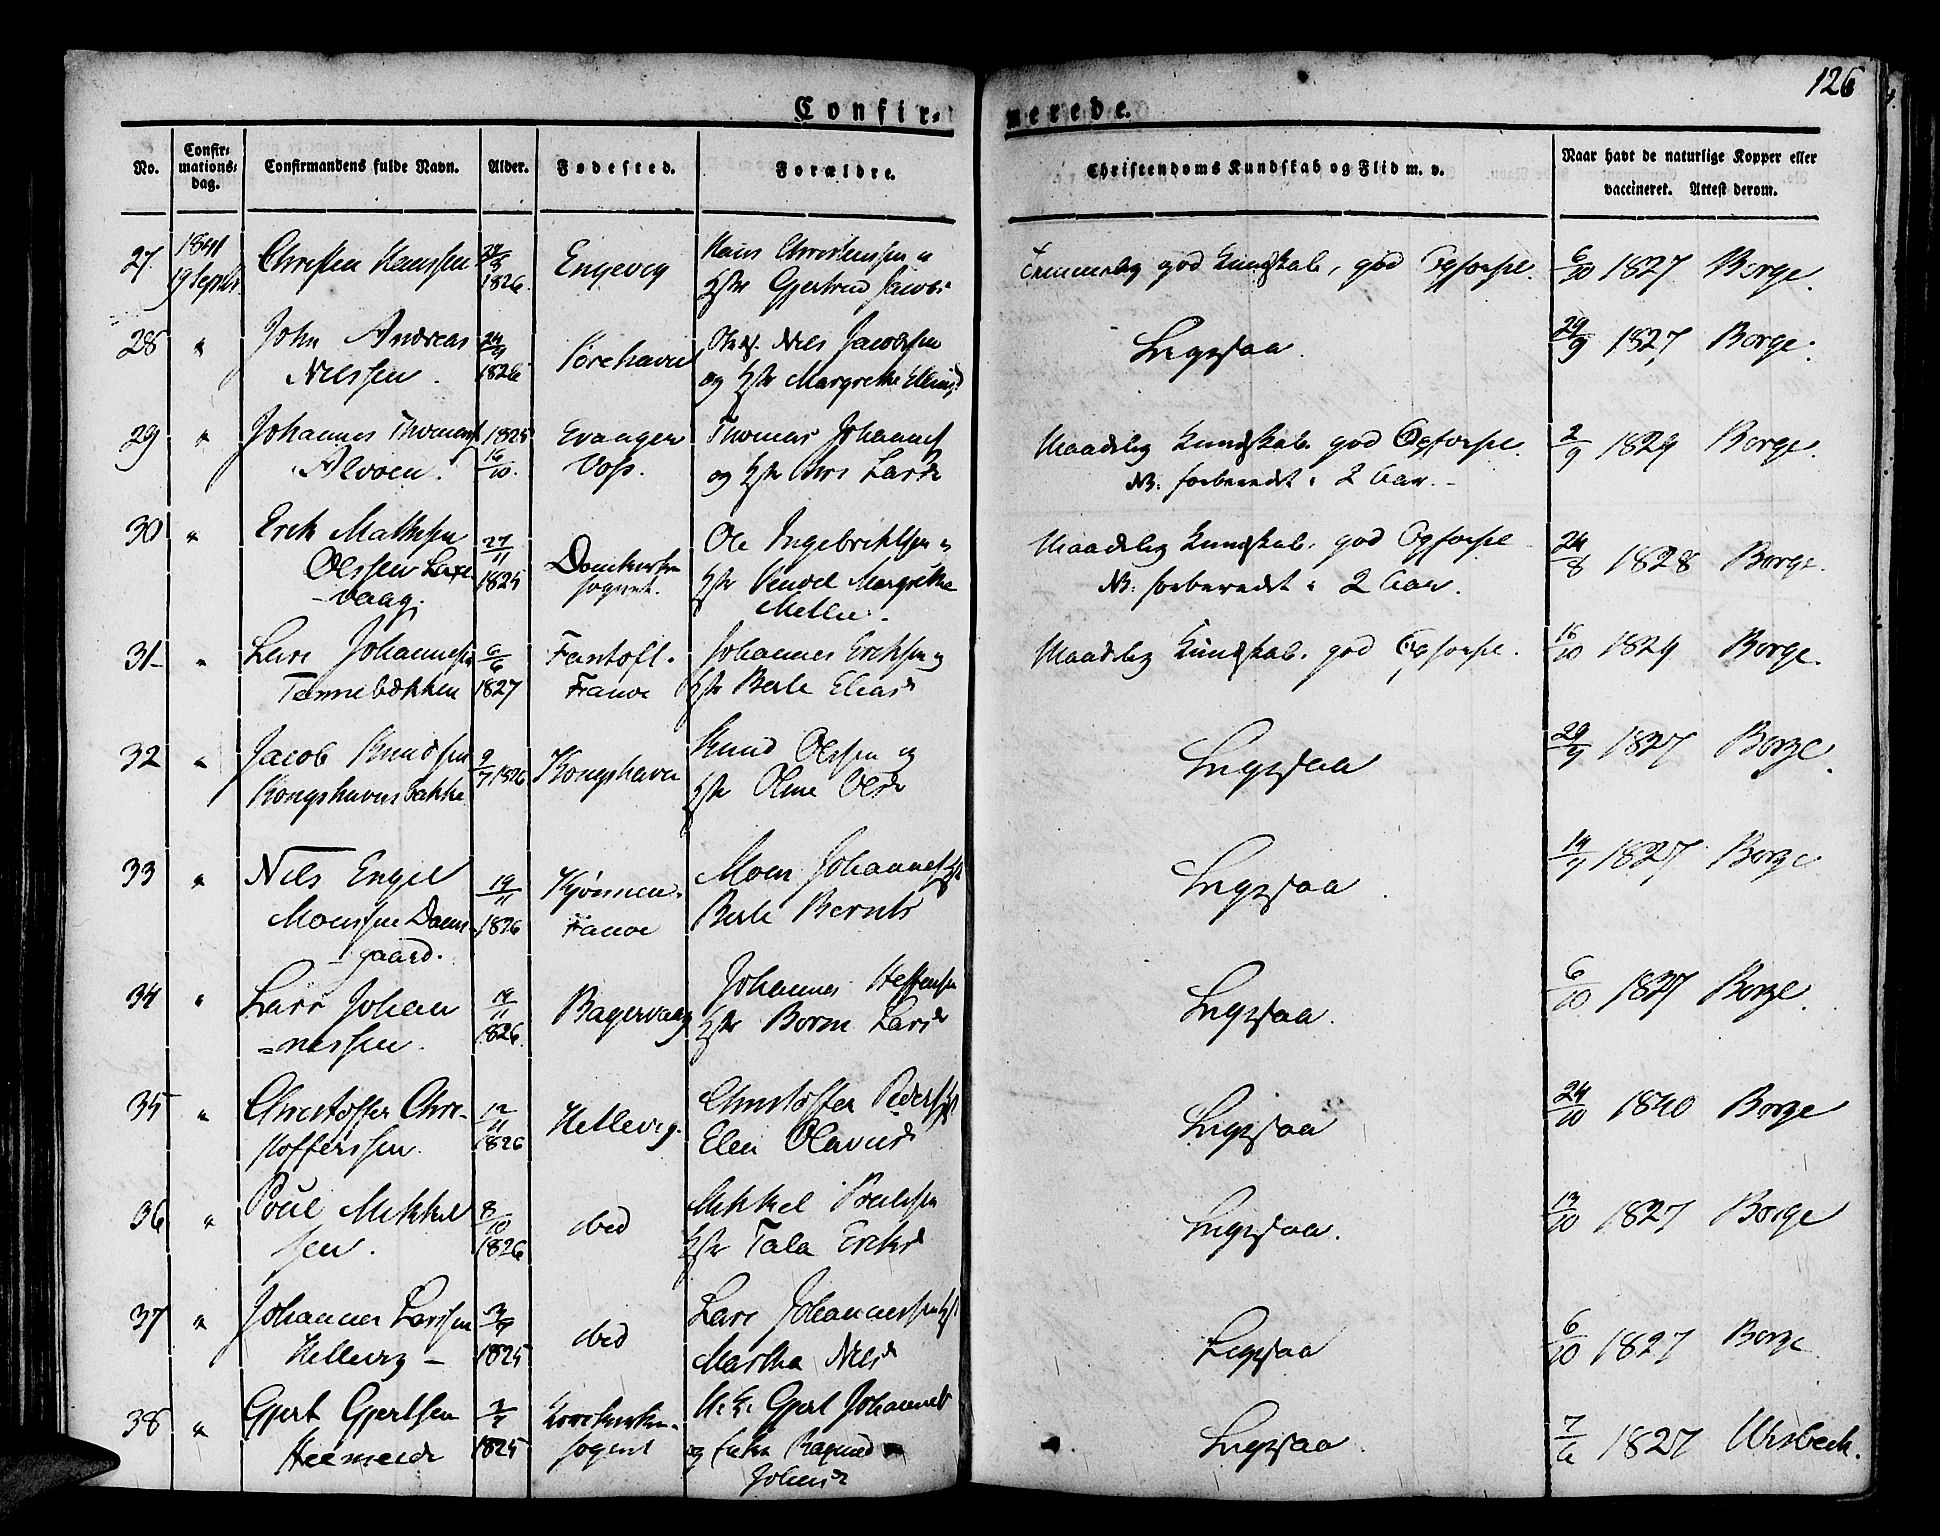 126
Confir-
merede.
No.
Confir-
mations-
dag.
Confirmandens fulde Navn.
Alder.
Fødested.
Forældre.
Christendoms Kundskab og Flid m. v.
Naar havt de naturlige Kopper eller
vaccineret. Attest derom.
27
1841
19 Septbr.
Christen Hanssen
1826.
Engevig
Hans Christenssen
Gjertrud Jacobs
god Kundskab, god Opførsel.
6/10 1827 Borge.
28 "
John Andreas
Nilssen.
24/9
1826
Nils Jacobssen
og Hstr Margrethe
Ligesaa.
29/9 1827 Borge.
29 "
Johannes Thomass
Alvøen.
1825
16/10.
Evanger
Voss.
Thomas Johanness
og Hstr Larsd
Maadelig Kundskab. god Opførsel.
NB: forberedt i 2 Aar.
2/9 1829 Borge.
30 "
Erik Mathissen
Olssen Laxe-
vaag.
27/11
1825
Domkirke
sognet.
Ole Ingebrichtsen
Hstr Margrethe
Maadelig Kundskab. god Opførsel
NB: forberedt i 2 Aar.
24/8 1828 Borge.
31 "
Lars Johannessen
Tennebækken
6/6
1827
Fantoft.
Fanøe
Johannes Eriksen og
Hstr Berte Eliasd
Maadelig Kundskab. god Opførsel.
16/10 1829 Borge.
32 "
Jacob Knudsen
Kongshavnsbakke
9/7 1826
Kongshavn
Knud Olssen og
Hstr Oline Olsd
Ligesaa
29/9 1827 Borge.
33 "
Nils Engel
Monssen Dams-
gaard.
19/11
1826
Fanøe
Mons Johannes Hst
Berte Bernts
Ligesaa.
1827 Borge
34 "
Lars Johan
=nessen.
19/11
1826.
Johannes
Hstr Larsd
Ligesaa.
6/10 1827 Borge.
35 "
Christoffer Chri-
stofferssen.
12/11
1826
Hellevig.
Christoffer Peders Hst
Elen Olavusd
Ligesaa
24/10 1840 Borge
36 "
Poul Mikkel
sen.
8/10
1826
ibid
Mikkel Poulssen
Hstr Tala Eriksd
Ligesaa.
13/10 1827 Borge
37 "
Johannes Larssen
Hellevig -
3/9
1825
ibid
Lars Johannessen Hst
Martha Nilsd
Ligesaa
6/10 1827 Borge
38 "
Gjert Gjertsen
1825
Korskirke-
sognet
Gjert Johannes
og Enke Ragnild
Johansd
Ligesaa.
7/6 1827 Wisbech.